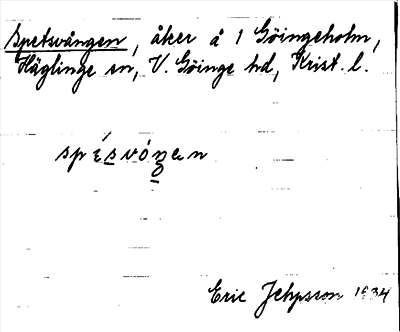 Spetsvången, åker å 1 Göingeholm,
Häglinge sn, V. Göinge hd, Krist. l.
spésvóŋen
Eric 1934